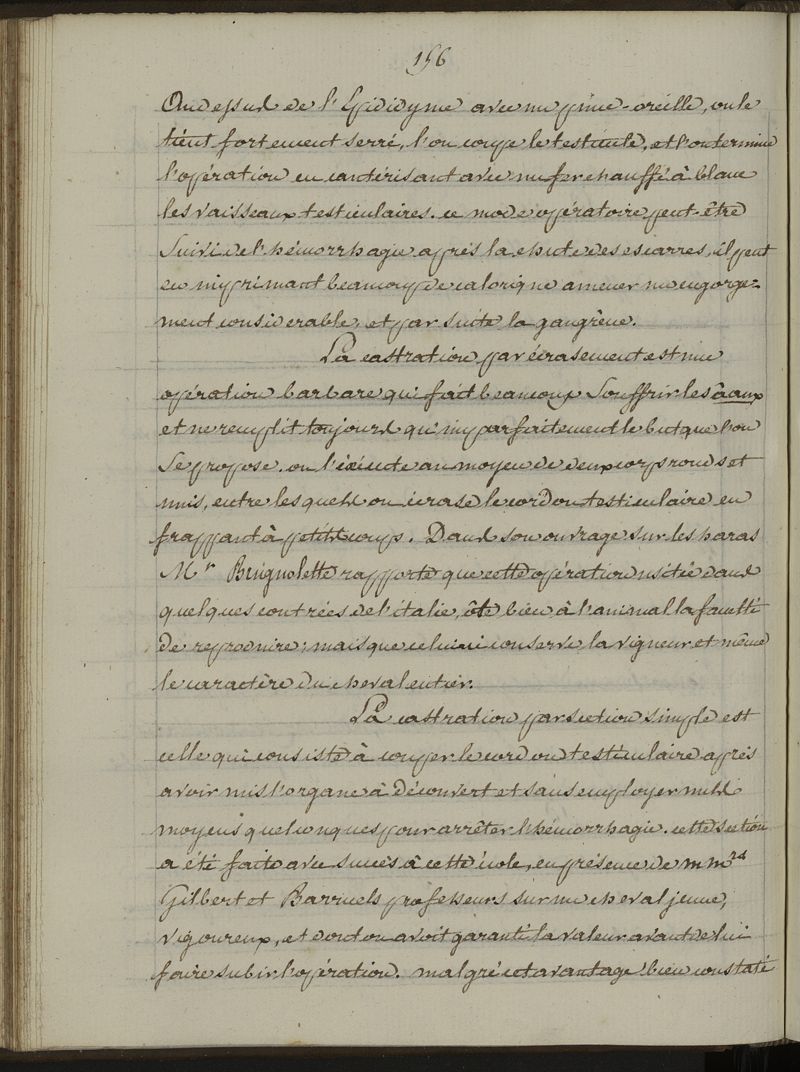 156
Au dessus de l'Epididyme avec un pince-oreille, on le
tient fortement serré, l'on coupe le testicule, et l'on termine
l'opération en cautérisant avec un fer chauffé à blanc
les vaisseaux testiculaires. ce mode opératoire peut-être
suivi de l'hémorrhagie après la chute des escarres, il peut
en imprimant beaucoup de calorique amener un engorge=
ment considerable, et par suite la gangrène.
La castration par écrasement est une
opération barbare qui fait beaucoup Souffrir les aaux
et ne remplit toujours qu'imparfaitement le but que l'on
se propose. on l'éxécute au moyen de deux corps ronds et
unis, entre lesquels on écrase le cordon testiculaire en
frappant à petits coups. Dans son ouvrage sur les haras
Mr Brugnolette rapporte que cette opération usitée dans
quelques contrées de l'italie, ôte bien à l'animal la faculté
de reproduire; mais que celui ci conserve la vigueur et même
le caractère du cheval entier.
La castration par section simple est
celle qui consiste à couper le cordon testiculaire après
avoir mis l'organe à découvert et sans employer nuls
moyens quelconques pour arrêter l'hémorrhagie. cette section
a été faite avec succès à cette école, en présence de mmrs
Gilbert et Barruels professeurs sur un cheval jeune,
vigoureux, et dont on avoit garanti la valeur avant de lui
faire subir l'opération. malgré cet avantage bien constaté